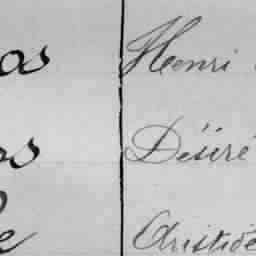 as Henri
os Désiré
e Aristide